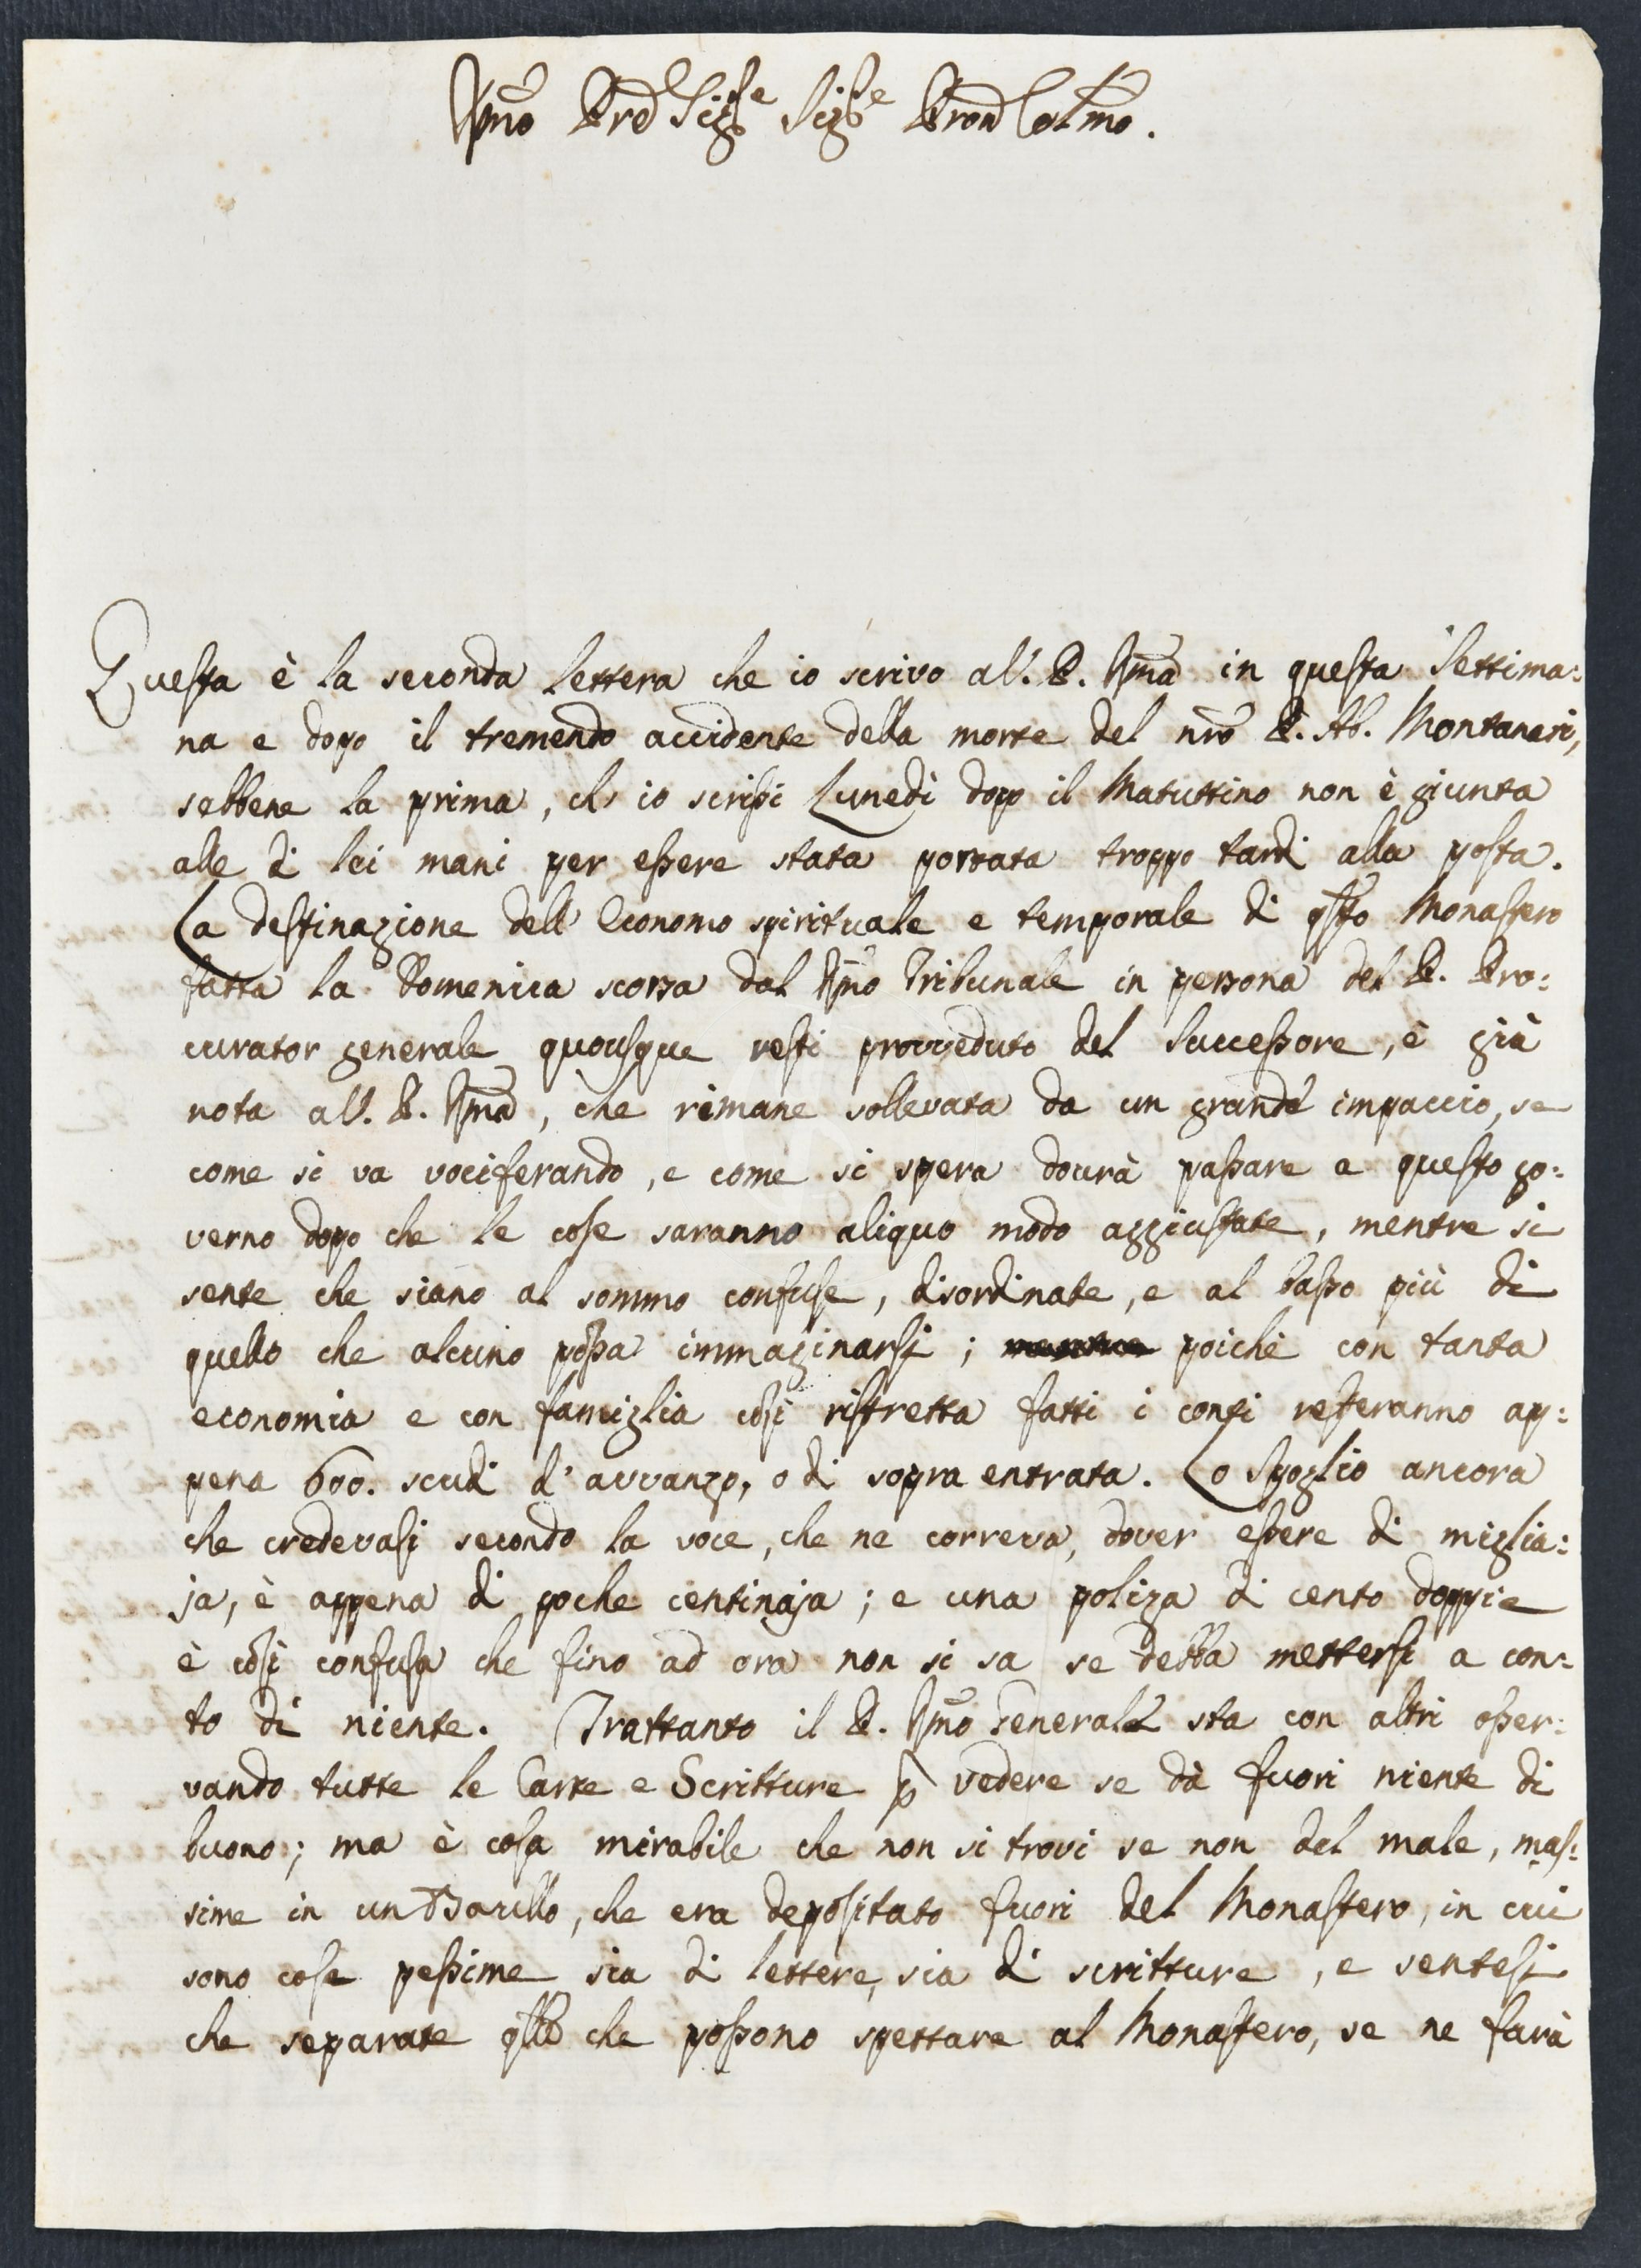 Rmo Prd Sigre Sigre Pron Colmo.
Questa è la seconda lettera che io scrivo al V. P. Rma in questa Settima:
na e dopo il tremendo accidente della morte del nro P. Ab. Montanari,
sebbene la prima, ch' io scrissi Lunedì dopo il Matuttino non è giunta
alle di lei mani per essere stata portata troppo tardi alla posta.
La destinazione dell' Economo spirituale e temporale di qsto Monastero
fatta la Domenica scorsa dal Rmo Tribunale in persona del P. Pro:
curator generale quousque resti provveduto del Successore, è già
nota al V. P. Rma, che rimane sollevata da un grande impaccio, se
come si va vociferando, e come si spera dovrà passare a questo go:
verno dopo che le cose saranno aliquo modo aggiustate, mentre si
sente che siano al sommo confuse, disordinate, e al basso più di
quello che alcuno possa immaginarsi; mentre poichè con tanta
economia e con famiglia così ristretta fatti i conti resteranno ap:
pena 600. scudi d' avvanzo, o di sopra entrata. Lo Spoglio ancora
che credevasi secondo la voce, che ne correva, dover essere di miglia:
ja, è appena di poche centinaja; e una poliza di cento doppie
è così confusa che fino ad ora non si sa se debba mettersi a con:
to di niente. Trattanto il P. Rmo Generale sta con altri osser:
vando tutte le Carte e Scritture p vedere se dà fuori niente di
buono; ma è cosa mirabile che non si trovi se non del male, mas:
sime in un Baullo, che era depositato fuori del Monastero, in cui
sono cose pessime sia di lettere, sia di scritture, e sentesi
che separate qlle che possono spettare al Monastero, se ne farà